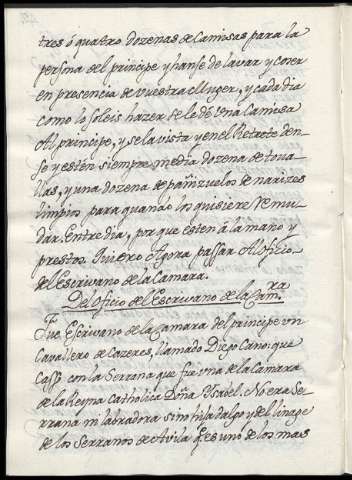 tres ó quatro dozenas de Camisas para la
persona del principe y hanse de lavar y coser
en presencia de vuestra Muger, y cada dia
como lo soleis hazer se le dé una Camisa
Al principe, y se la vista y en el Retrete den-
se y esten siempre media dozena de tova-
llas, y una dozena de pañizuelos de narizes
limpios para quando los quisiere Remu-
dar. Entre dia, por que esten á la mano y
prestos. Quiero Agora passar Al oficio
del Escrivano de la Camara.
Del Oficio del Escrivano de la Camra
Fue Escrivano de la Camara del principe vn
Cavallero de Cazeres, llamado Diego Cano: que
Cassó con la Serrana que fue vna de la Camara
de la Reyna Catholica Doña Ysabel. No era Se-
rrana ni labradora sino hijadalgo y del linage
de los Serranos de Avila q es uno de los mas